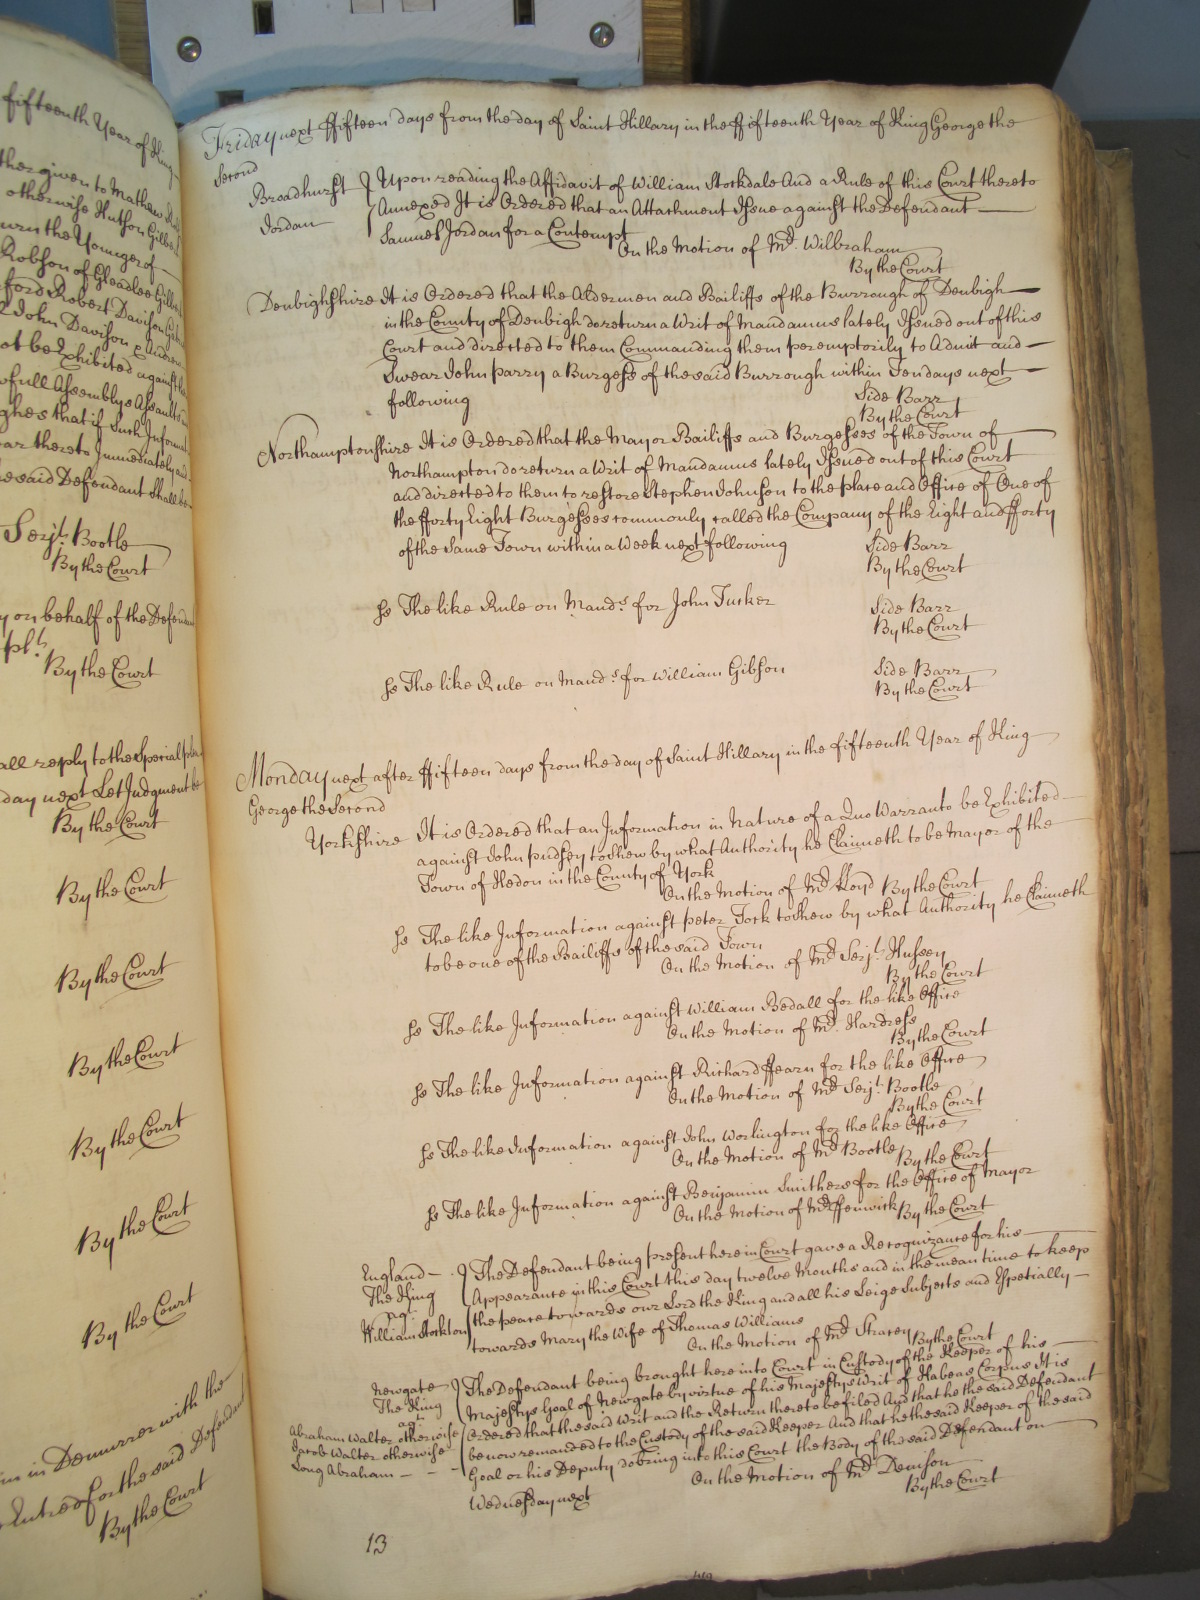 fifteenth Year of King
ther given to Mathew
otherwise Hutson Gilbert
urn the Younger of
Robson of Gleadlee Gilbert
ford Robert Davison
John Davison
ot be Exhibited against
full Assemblys Assaults
ghes that if Such Informat
ar thereto Immediately and
esaid Defendant Shall be
Serjt. Bootle
By the Court
y on behalf of the Defendt
plt.
By the Court
all reply to the Special plea
day next Let Judgment be
By the Court
By the Court
By the Court
By the Court
By the Court
By the Court
By the Court
in Demurrer with the
Entred for the said Defendant
By the Court
Friday next ffifteen days from the day of Saint Hillary in the ffifteenth Year of King George the
Second
Broadhurst
Jordan
Upon reading the Affidavit of William Stockdale And a Rule of this Court thereto
Annexed It is Ordered that an Attachment Issue against the Defendant
Samuel Jordan for a Contempt
On the Motion of Mr. Wilbraham
By the Court
Denbighshire It is Ordered that the Aldermen and Bailiffs of the Burrough of Denbigh
in the County of Denbigh do return a Writ of Mandamus lately Issued out of this
Court and directed to them Commanding them peremptorily to Admit and
Swear John parry a Burgess of the said Burrough within Ten days next
following
Side Barr
By the Court
Northamptonshire It is Ordered that the Mayor Bailiffs and Burgesses of the Town of
Northampton do return a Writ of Mandamus lately Issued out of this Court
and directed to them to restore Stephen Johnson to the place and Office of One of
the fforty Eight Burgesses commonly called the Company of the Eight and fforty
of the Same Town within a Week next following
Side Barr
By the Court
Ss The like Rule on Mands. for John Tucker
Side Barr
By the Court
Ss The like Rule on Mands. for William Gibson
Side Barr
By the Court
Monday next after ffifteen days from the day of Saint Hillary in the fifteenth Year of King
George the Second
Yorkshire It is Ordered that an Information in Nature of a Quo Warranto be Exhibited
against John pudsey to shew by what Authority he Claimeth to be Mayor of the
Town of Hedon in the County of York
On the Motion of Mr. Lloyd By the Court
Ss The like Information against peter Tock to shew by what Authority he Claimeth
to be one of the Bailiffs of the said Town
On the Motion of Mr. Serjt. Hussey
By the Court
Ss The like Information against William Bedall for the like Office
On the Motion of Mr. Hardress
By the Court
Ss The like Information against Richard ffearn for the like Office
On the Motion of Mr. Serjt. Bootle
By the Court
Ss The like Information against John Worlington for the like Office
On the Motion of Mr. Bootle By the Court
Ss The like Information against Benjamin Smithers for the Office of Mayor
On the Motion of Mr. ffenwick By the Court
England
The King
agt.
William Stockton
The Defendant being present here in Court gave a Recognizance for his
Appearance in this Court this day twelve Months and in the mean time to keep
the peace towards our Lord the King and all his Leige Subjects and Especially
towards Mary the Wife of Thomas Williams
On the Motion of Mr. Stracey By the Court
Newgate
The King
agt.
Abraham Walter otherwise
Jacob Walter otherwise
Long Abraham
The Defendant being brought here into Court in Custody of the Keeper of his
Majestys Goal of Newgate by virtue of his Majestys Writ of Habeas Corpus It is
Ordered that the said Writ and the Return thereto be filed And that he the said Defendant
be now remanded to the Custody of the said Keeper And that he the said Keeper of the said
Goal or his Deputy do bring into this Court the Body of the said Defendant on
Wednesday next
On the Motion of Mr. Denison
By the Court
13